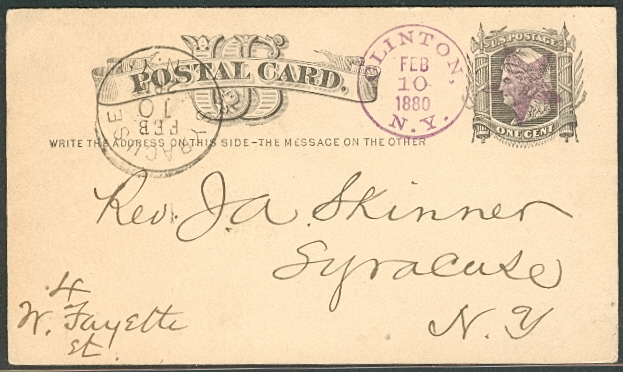 US
POSTAL CARD.
WRITE THE ADDRESS ON THIS SIDE-THE MESSAGE ON THE OTHER
SYRACUSE
FEB
10
N.Y.
CLINTON,
FEB
10
1880
N.Y.
U.S. POSTAGE
ONE CENT
Rev. J. A. Skinner
Syracuse
N. Y
4
W. Fayette
st.